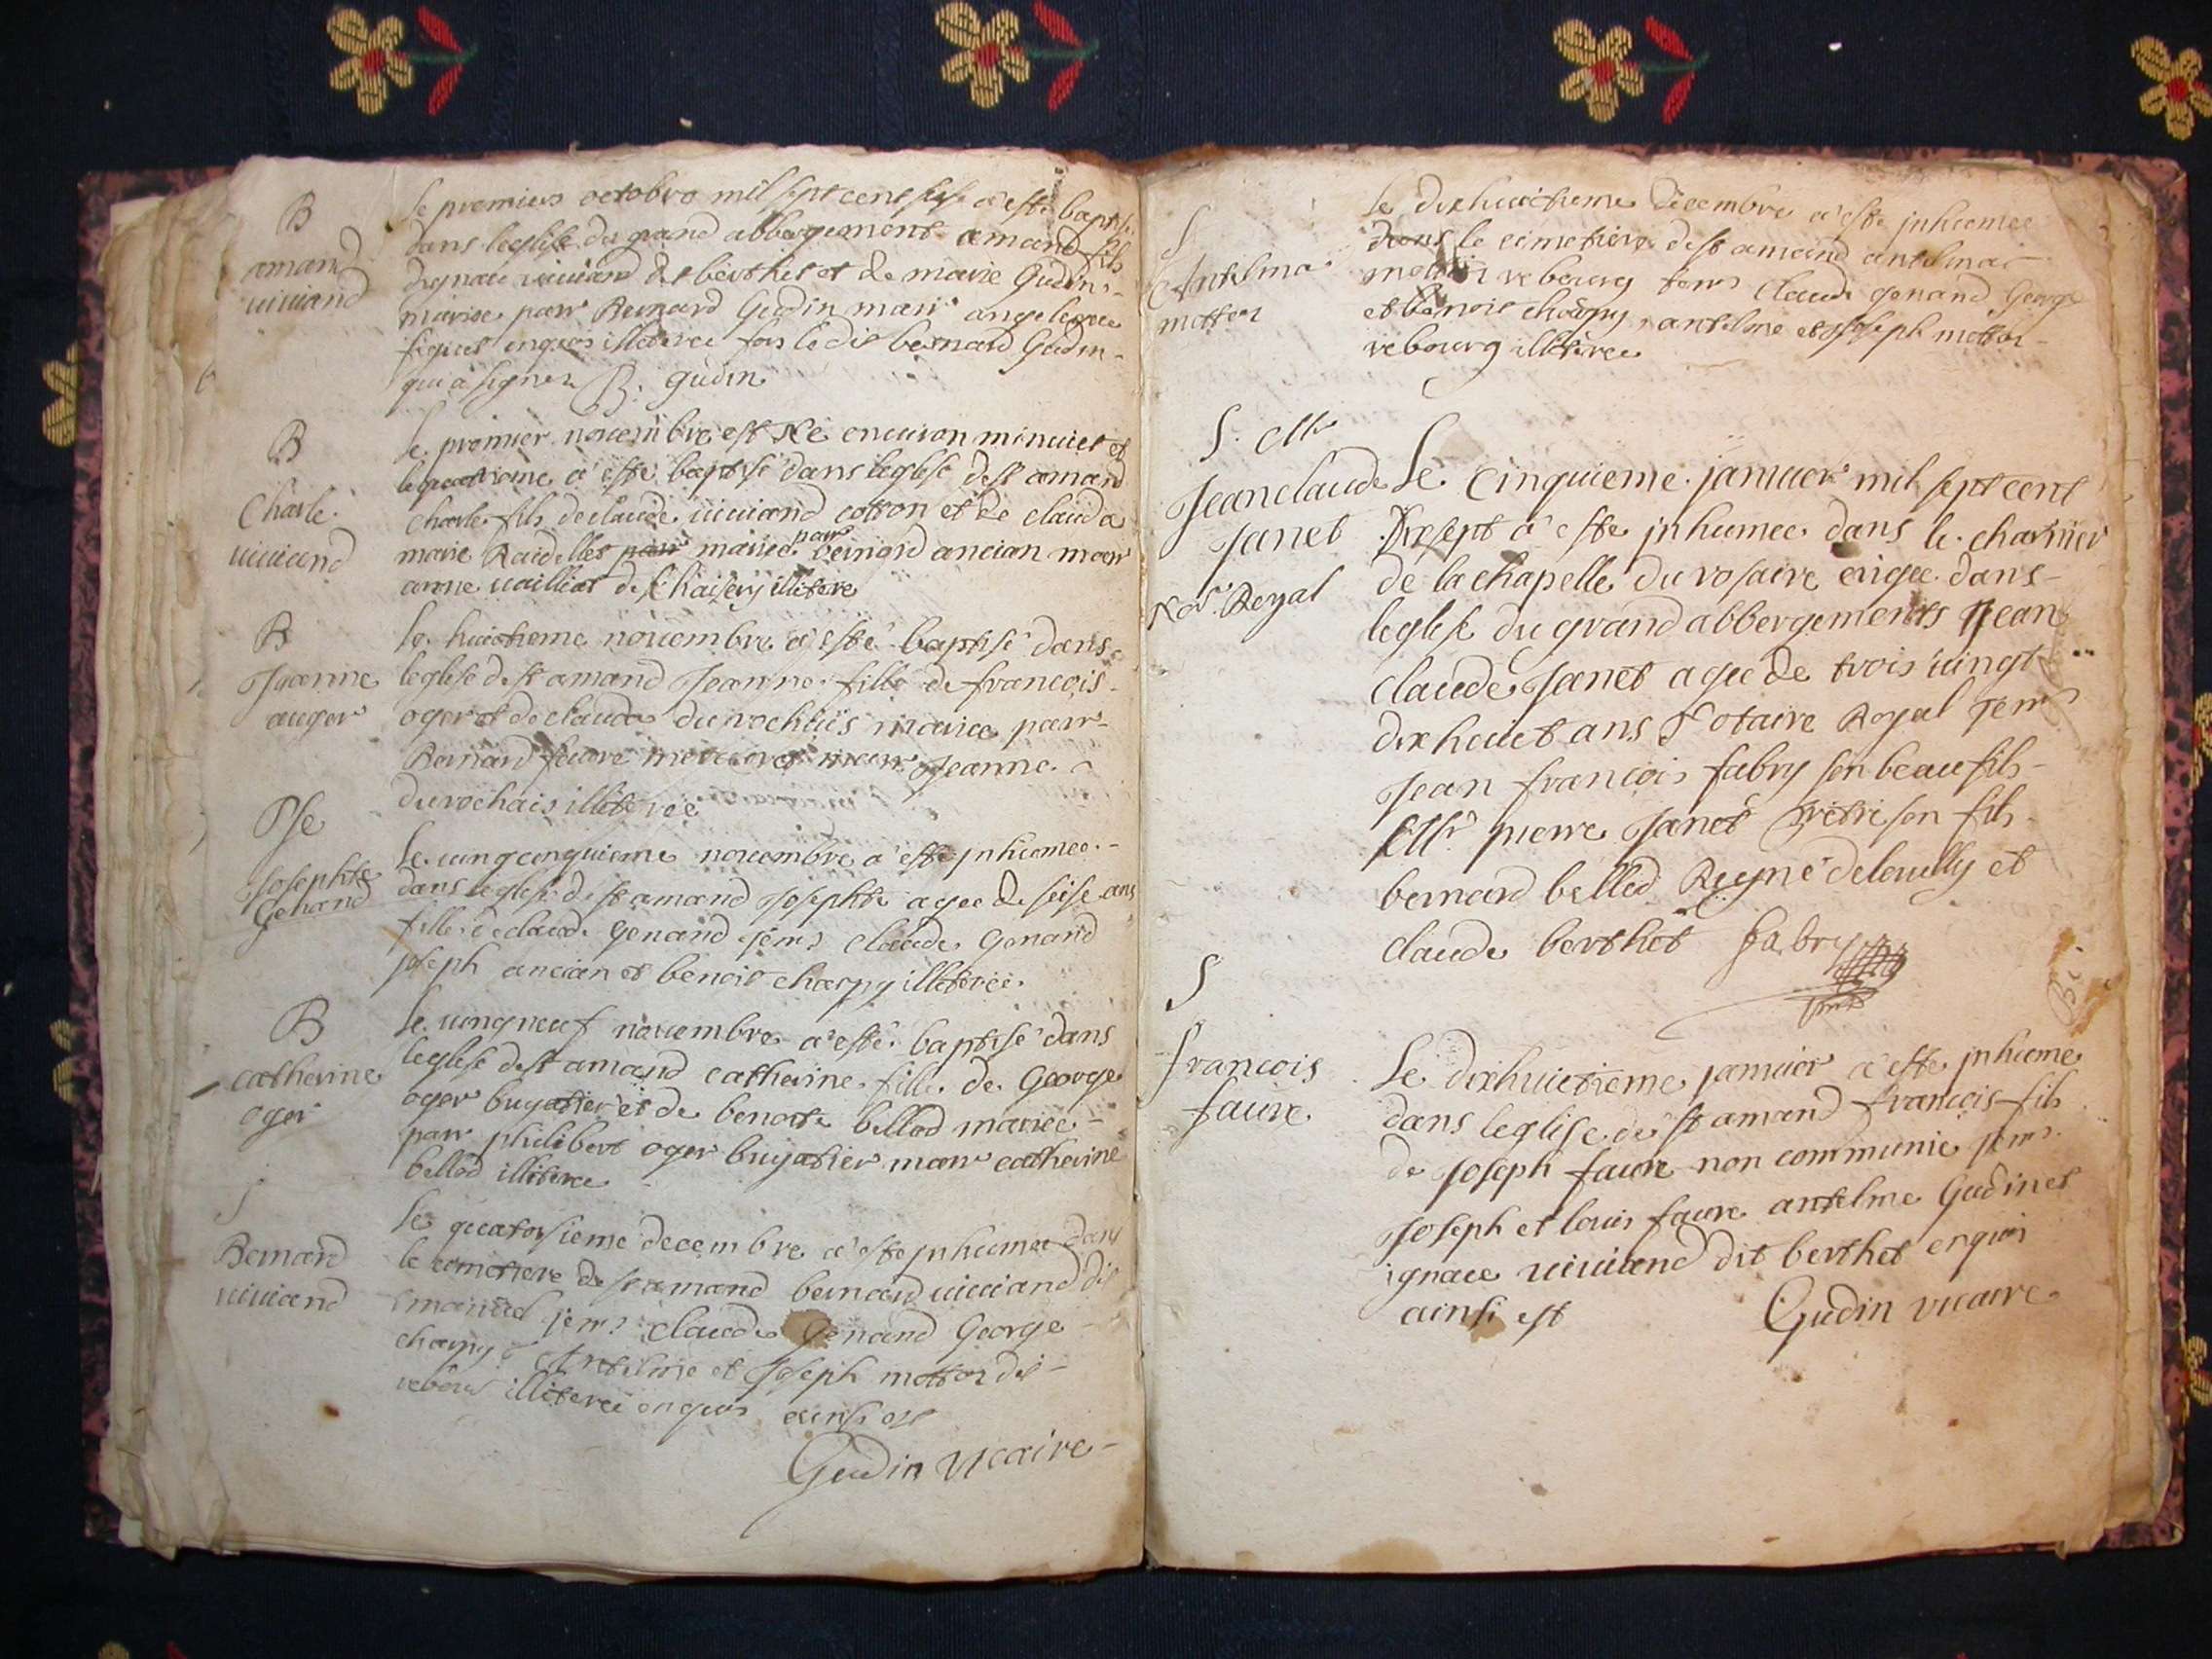 B
amand
viuiand
Le premier octobre mil sept cent seise a esté baptisé
dans leglise du grand abbergement amand fils
dygnace viuiand dit berthet et de marie Gudin
mariee parr Bernard Gudin marr angeleque
enquis illiteree fors ledit bernard Gudin
qui a signer B. gudin
B
Charle
viuiand
Le premier nouembre est Né enuiron minuiet et
le quatrieme a esté baptisé dans leglise de st amand
charle fils de claude viuiand cotton et de clauda
marie mariee parr bernard ancian marr
anne illitere
B
Jeanne
auger
Le huictieme nouembre a esté baptisé dans
leglise de st amand Jeanne fille de francois
oger et de clauda durochais mariee parr
Bernard faure marr Jeanne
durochais illiteree
Pse
Josephte
Genand
Le vingcinquieme nouembre a esté jnhumee
dans leglise de st amand Josephte agee de seise ans
fille de claude genand claude Genand
joseph ancian et benoit charpy illiteree.
B
catherine
oger
Le vingneuf nouembre a esté baptisé dans
leglise de st amand catherine fille de George
oger bugatier et de benoite bellod mariee
parr philibert oger bugatier marr catherine
bellod illiteree
S
Bernard
viuiand
Le quatorsieme decembre a esté jnhumee dans
le cimetiere de st amand bernard viuiand dit
claude Genand George
charpy Antelme et Joseph motton dit
rebour illiteree enquis ainsi est
Gudin vicaire
S
Antelma
motton
Le dixhuictieme decembre a esté jnhumee
dans le cimetiere de st amand antelma
rebourg claude genand George
et benoit charpy antelme et joseph motton
rebourg illiteree
S. Mre
Jeanclaude
Janet
Nore Royal
Le Cinquieme januier mil sept cent
dixsept a esté jnhumee dans le charnier
de la chapelle du rosaire erigee dans
leglise du grand abbergements Jean
claude Janet agee de trois vingt
dixhuict ans Notaire Royal
Jean francois fabry son beau fils
Mre pierre Janet prêtre son fils
bernard bellod Reyne et
claude berthet fabry
S
francois
faure
Le dixhuictieme januier a esté jnhume
dans leglise de st amand francois fils
de Joseph faure non communie
Joseph et louis faure antelme Gudin et
ignace viuiand dit berthet enquis
ainsi est Gudin vicaire